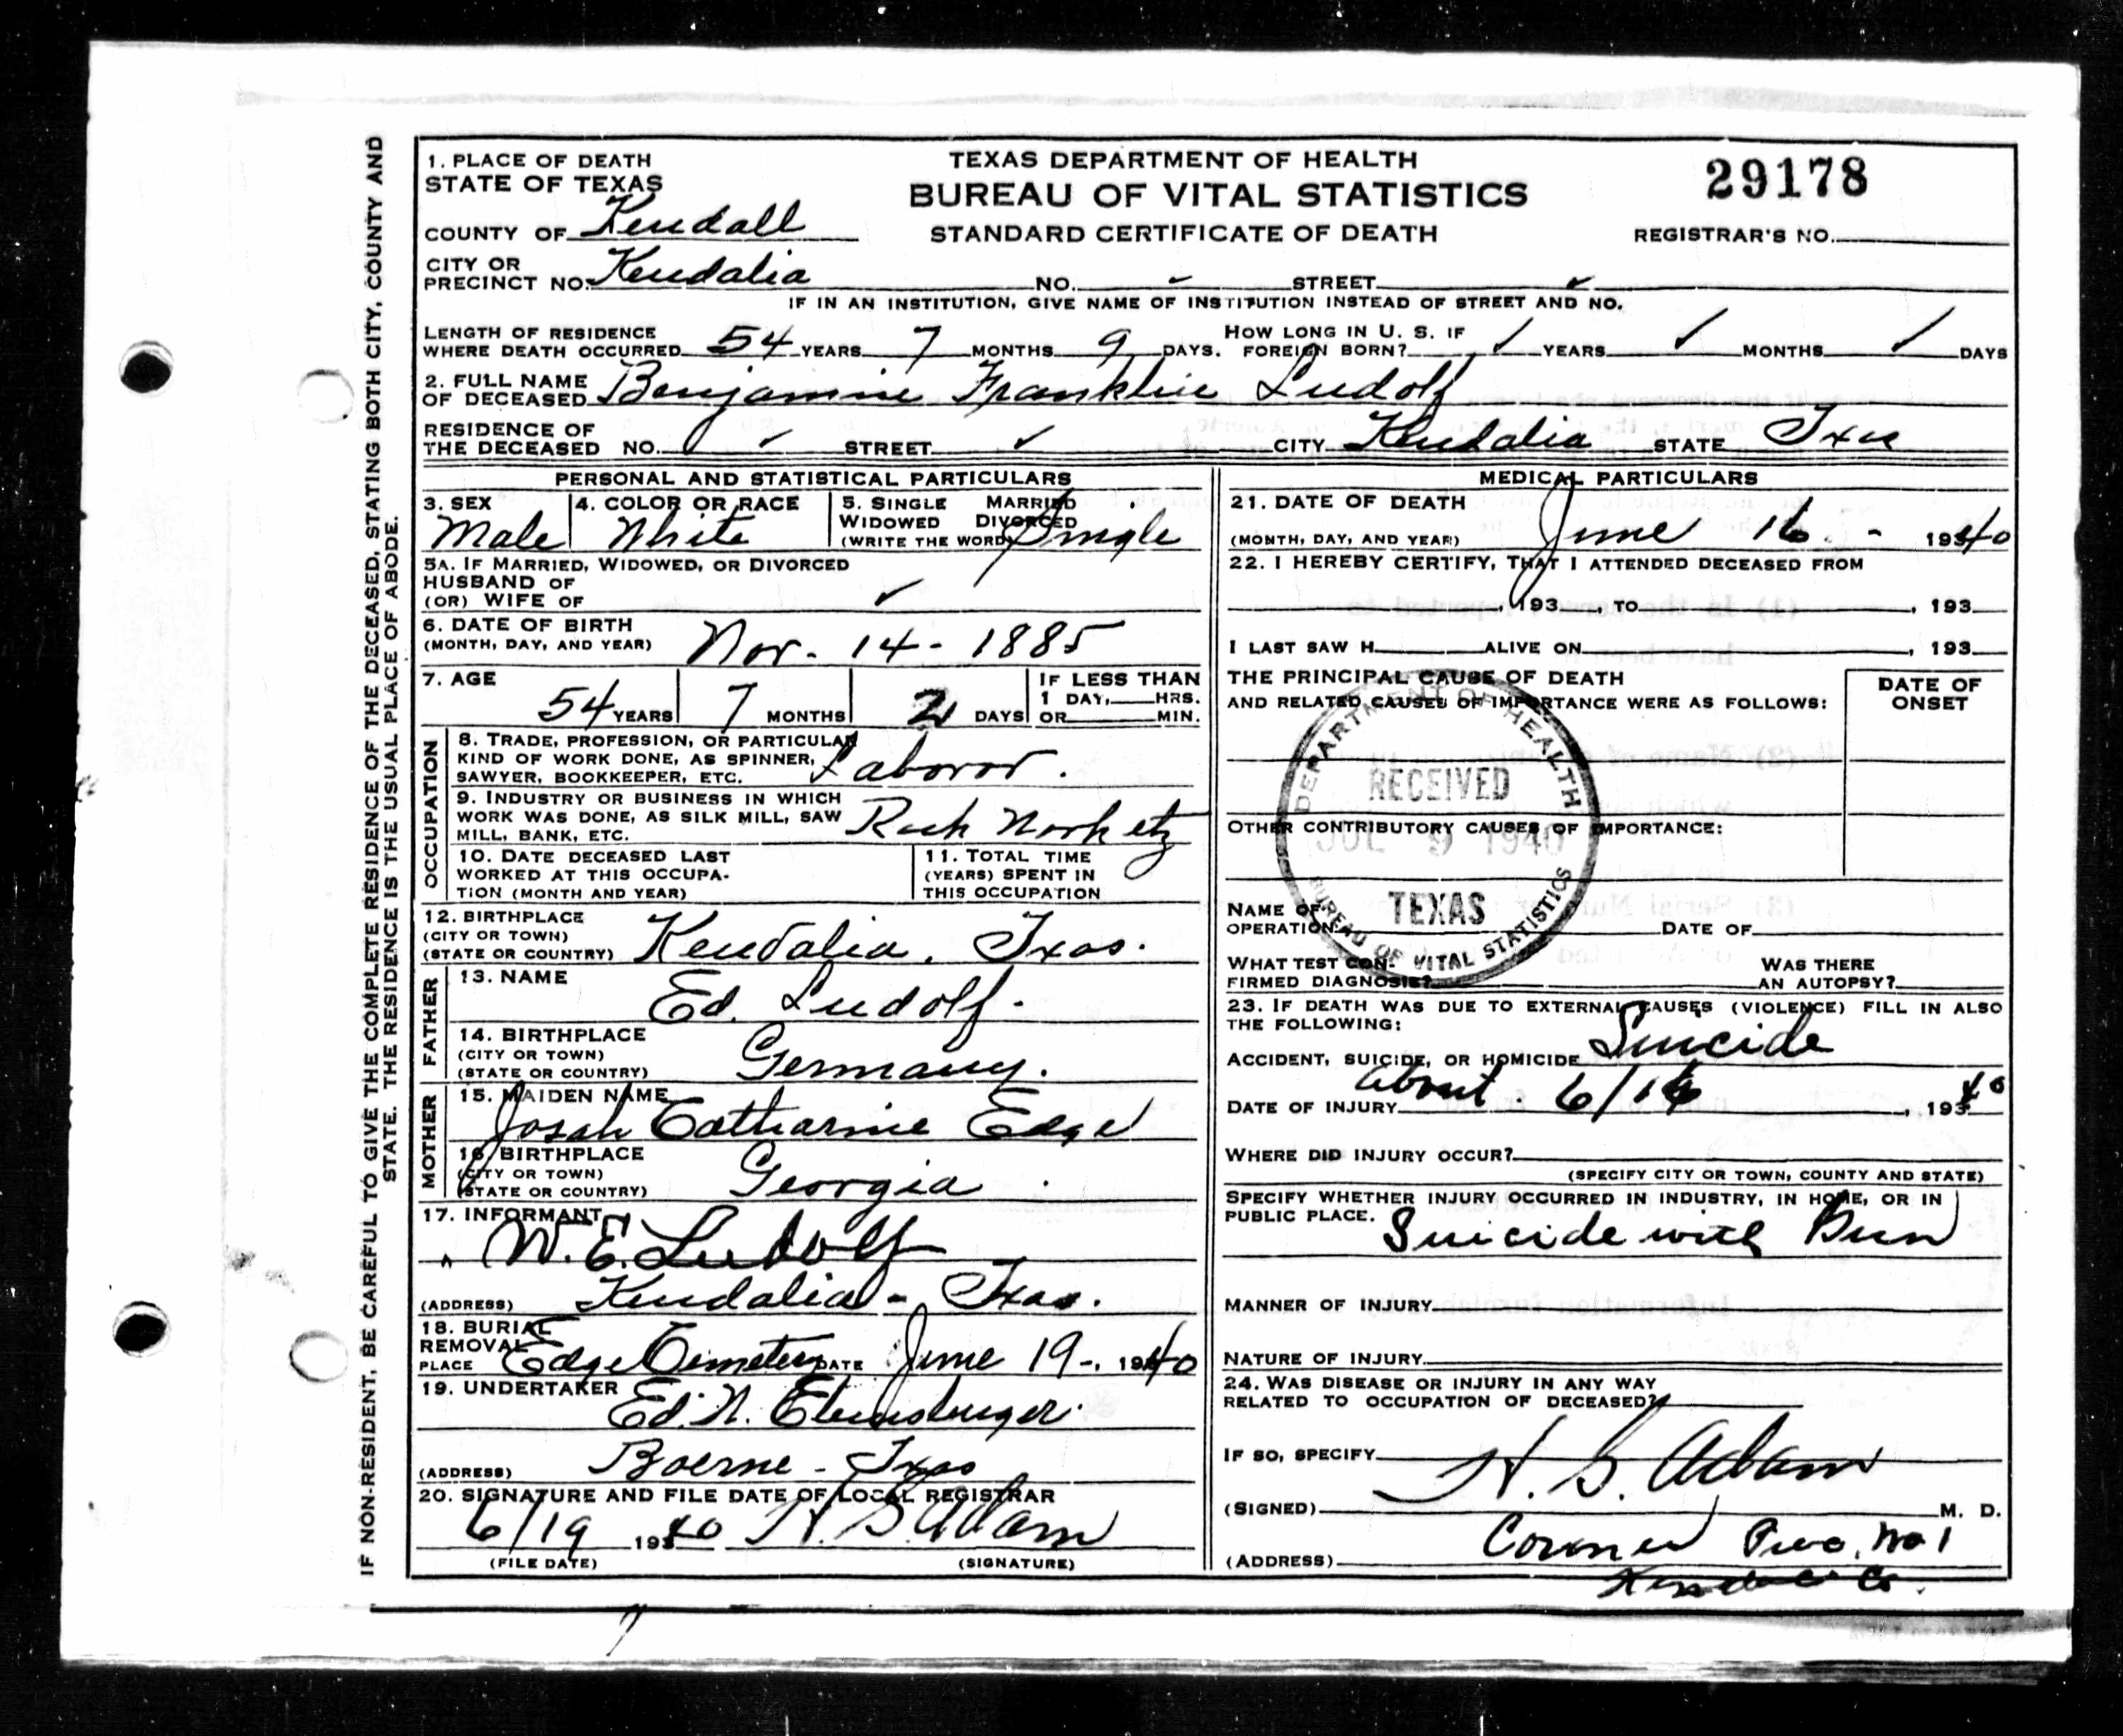 IF NON-RESIDENT, BE CAREFUL TO GIVE THE COMPLETE RESIDENCE OF THE DECEASED, STATING BOTH CITY, COUNTY AND
STATE. THE RESIDENCE IS THE USUAL PLACE OF ABODE.
1. PLACE OF DEATH
STATE OF TEXAS
TEXAS DEPARTMENT OF HEALTH
BUREAU OF VITAL STATISTICS
STANDARD CERTIFICATE OF DEATH
29178
REGISTRAR'S NO.
COUNTY OF Kendall
CITY OR
PRECINCT NO. Kendalia NO. ✓ STREET ✓
IF IN AN INSTITUTION, GIVE NAME OF INSTITUTION INSTEAD OF STREET AND NO.
LENGTH OF RESIDENCE
WHERE DEATH OCCURRED 54 YEARS 7 MONTHS 9 DAYS.
HOW LONG IN U. S. IF
FOREIGN BORN? ✓ YEARS ✓ MONTHS ✓ DAYS
2. FULL NAME
OF DECEASED Benjamine Franklin Ludolf
RESIDENCE OF
THE DECEASED NO. ✓ STREET ✓ CITY Kendalia STATE Txas
PERSONAL AND STATISTICAL PARTICULARS
3. SEX
Male
4. COLOR OR RACE
White
5. SINGLE MARRIED
WIDOWED DIVORCED
(WRITE THE WORD) Single
5A. IF MARRIED, WIDOWED, OR DIVORCED
HUSBAND OF
(OR) WIFE OF ✓
6. DATE OF BIRTH
(MONTH, DAY, AND YEAR) Nov. 14 - 1885
7. AGE
54 YEARS 7 MONTHS 2 DAYS
IF LESS THAN
1 DAY, HRS.
OR MIN.
OCCUPATION
8. TRADE, PROFESSION, OR PARTICULAR
KIND OF WORK DONE, AS SPINNER,
SAWYER, BOOKKEEPER, ETC. Laboror.
9. INDUSTRY OR BUSINESS IN WHICH
WORK WAS DONE, AS SILK MILL, SAW
MILL, BANK, ETC.
10. DATE DECEASED LAST
WORKED AT THIS OCCUPA-
TION (MONTH AND YEAR)
11. TOTAL TIME
(YEARS) SPENT IN
THIS OCCUPATION
12. BIRTHPLACE
(CITY OR TOWN)
(STATE OR COUNTRY) Kendalia, Txas.
FATHER
13. NAME
Ed. Ludolf.
14. BIRTHPLACE
(CITY OR TOWN)
(STATE OR COUNTRY) Germany.
MOTHER
15. MAIDEN NAME
Josah Catharine Edge
16. BIRTHPLACE
(CITY OR TOWN)
(STATE OR COUNTRY) Georgia
17. INFORMANT
W. E. Ludolf
(ADDRESS) Kendalia - Txas.
18. BURIAL
REMOVAL
PLACE Edge Cemetery DATE June 19-, 1940
19. UNDERTAKER Ed. N.
(ADDRESS) Boerne - Txas
20. SIGNATURE AND FILE DATE OF LOCAL REGISTRAR
6/19 1940 H. S. Adam
(FILE DATE) (SIGNATURE)
MEDICAL PARTICULARS
21. DATE OF DEATH
(MONTH, DAY, AND YEAR) June 16 - 1940
22. I HEREBY CERTIFY, THAT I ATTENDED DECEASED FROM
, 193 , TO , 193
I LAST SAW H ALIVE ON , 193
THE PRINCIPAL CAUSE OF DEATH
AND RELATED CAUSES OF IMPORTANCE WERE AS FOLLOWS:
DATE OF
ONSET
DEPARTMENT OF HEALTH
RECEIVED
JUL 9 1940
TEXAS
BUREAU OF VITAL STATISTICS
OTHER CONTRIBUTORY CAUSES OF IMPORTANCE:
NAME OF
OPERATION DATE OF
WHAT TEST CON-
FIRMED DIAGNOSIS?
WAS THERE
AN AUTOPSY?
23. IF DEATH WAS DUE TO EXTERNAL CAUSES (VIOLENCE) FILL IN ALSO
THE FOLLOWING:
ACCIDENT, SUICIDE, OR HOMICIDE Suicide
DATE OF INJURY about 6/16, 1940
WHERE DID INJURY OCCUR?
(SPECIFY CITY OR TOWN, COUNTY AND STATE)
SPECIFY WHETHER INJURY OCCURRED IN INDUSTRY, IN HOME, OR IN
PUBLIC PLACE. Suicide with Gun
MANNER OF INJURY
NATURE OF INJURY
24. WAS DISEASE OR INJURY IN ANY WAY
RELATED TO OCCUPATION OF DECEASED?
IF SO, SPECIFY
(SIGNED) H. S. Adam M. D.
(ADDRESS) Coroner Prec. No 1
Kendall Co.